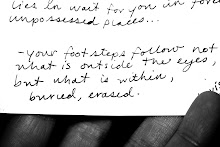 lies in wait for you in
unpossessed places...
-your footsteps follow not
what is outside the eyes,
but what is within,
buried, erased.